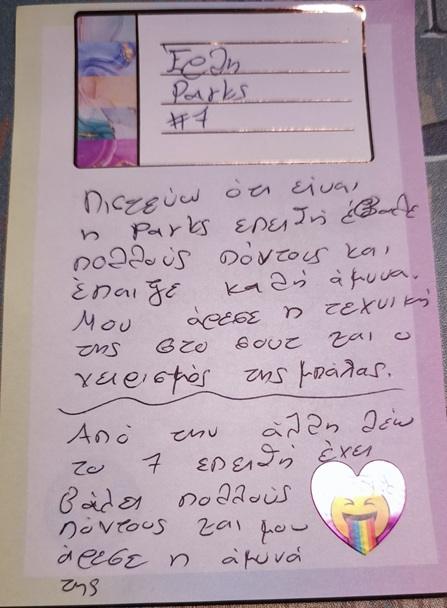 Έρλη
Parks
#7
Πιστεύω ότι είναι
η Parks επειδή έβαλε
πολλούς πόντους και
έπαιξε καλή άμυνα.
Μου άρεσε η τεχνική
της στο σουτ και ο
χειρισμός της μπάλας.
Από την άλλη λέω
το 7 επειδή έχει
βάλει πολλούς
πόντους και μου
άρεσε η άμυνά
της